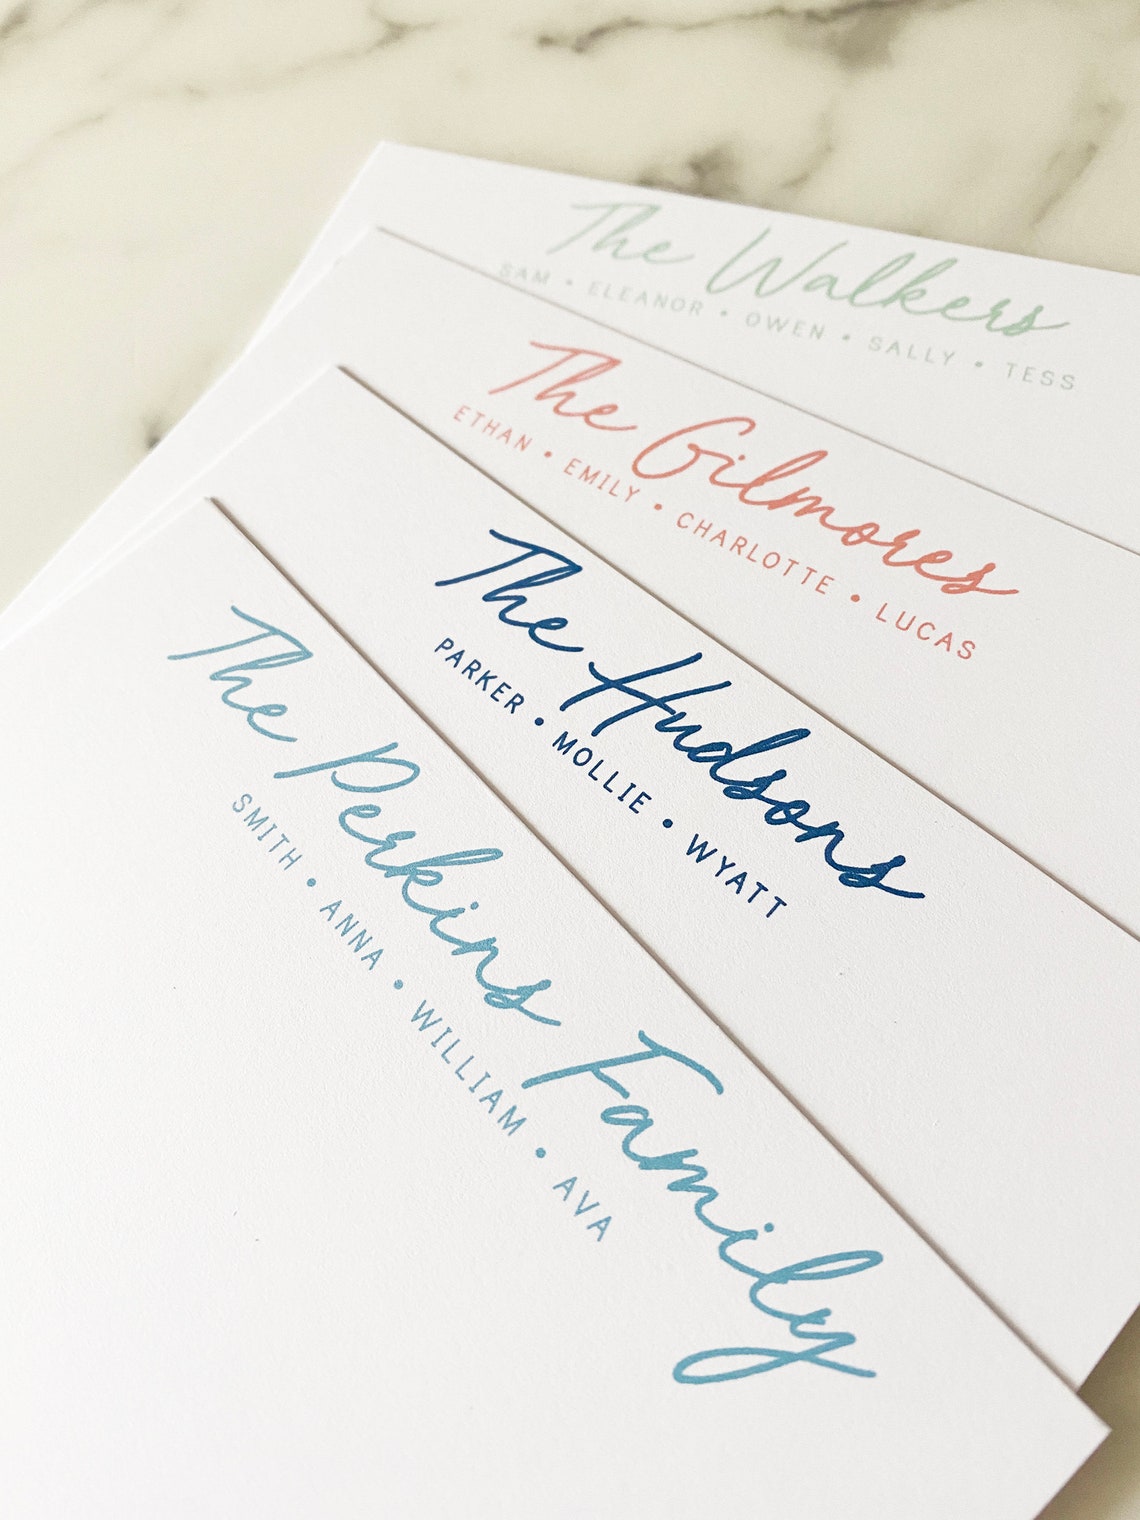 The Walkers
SAM • ELEANOR • OWEN • SALLY • TESS
The Gilmores
ETHAN • EMILY • CHARLOTTE • LUCAS
The Hudsons
PARKER • MOLLIE • WYATT
The Perkins Family
SMITH • ANNA • WILLIAM • AVA